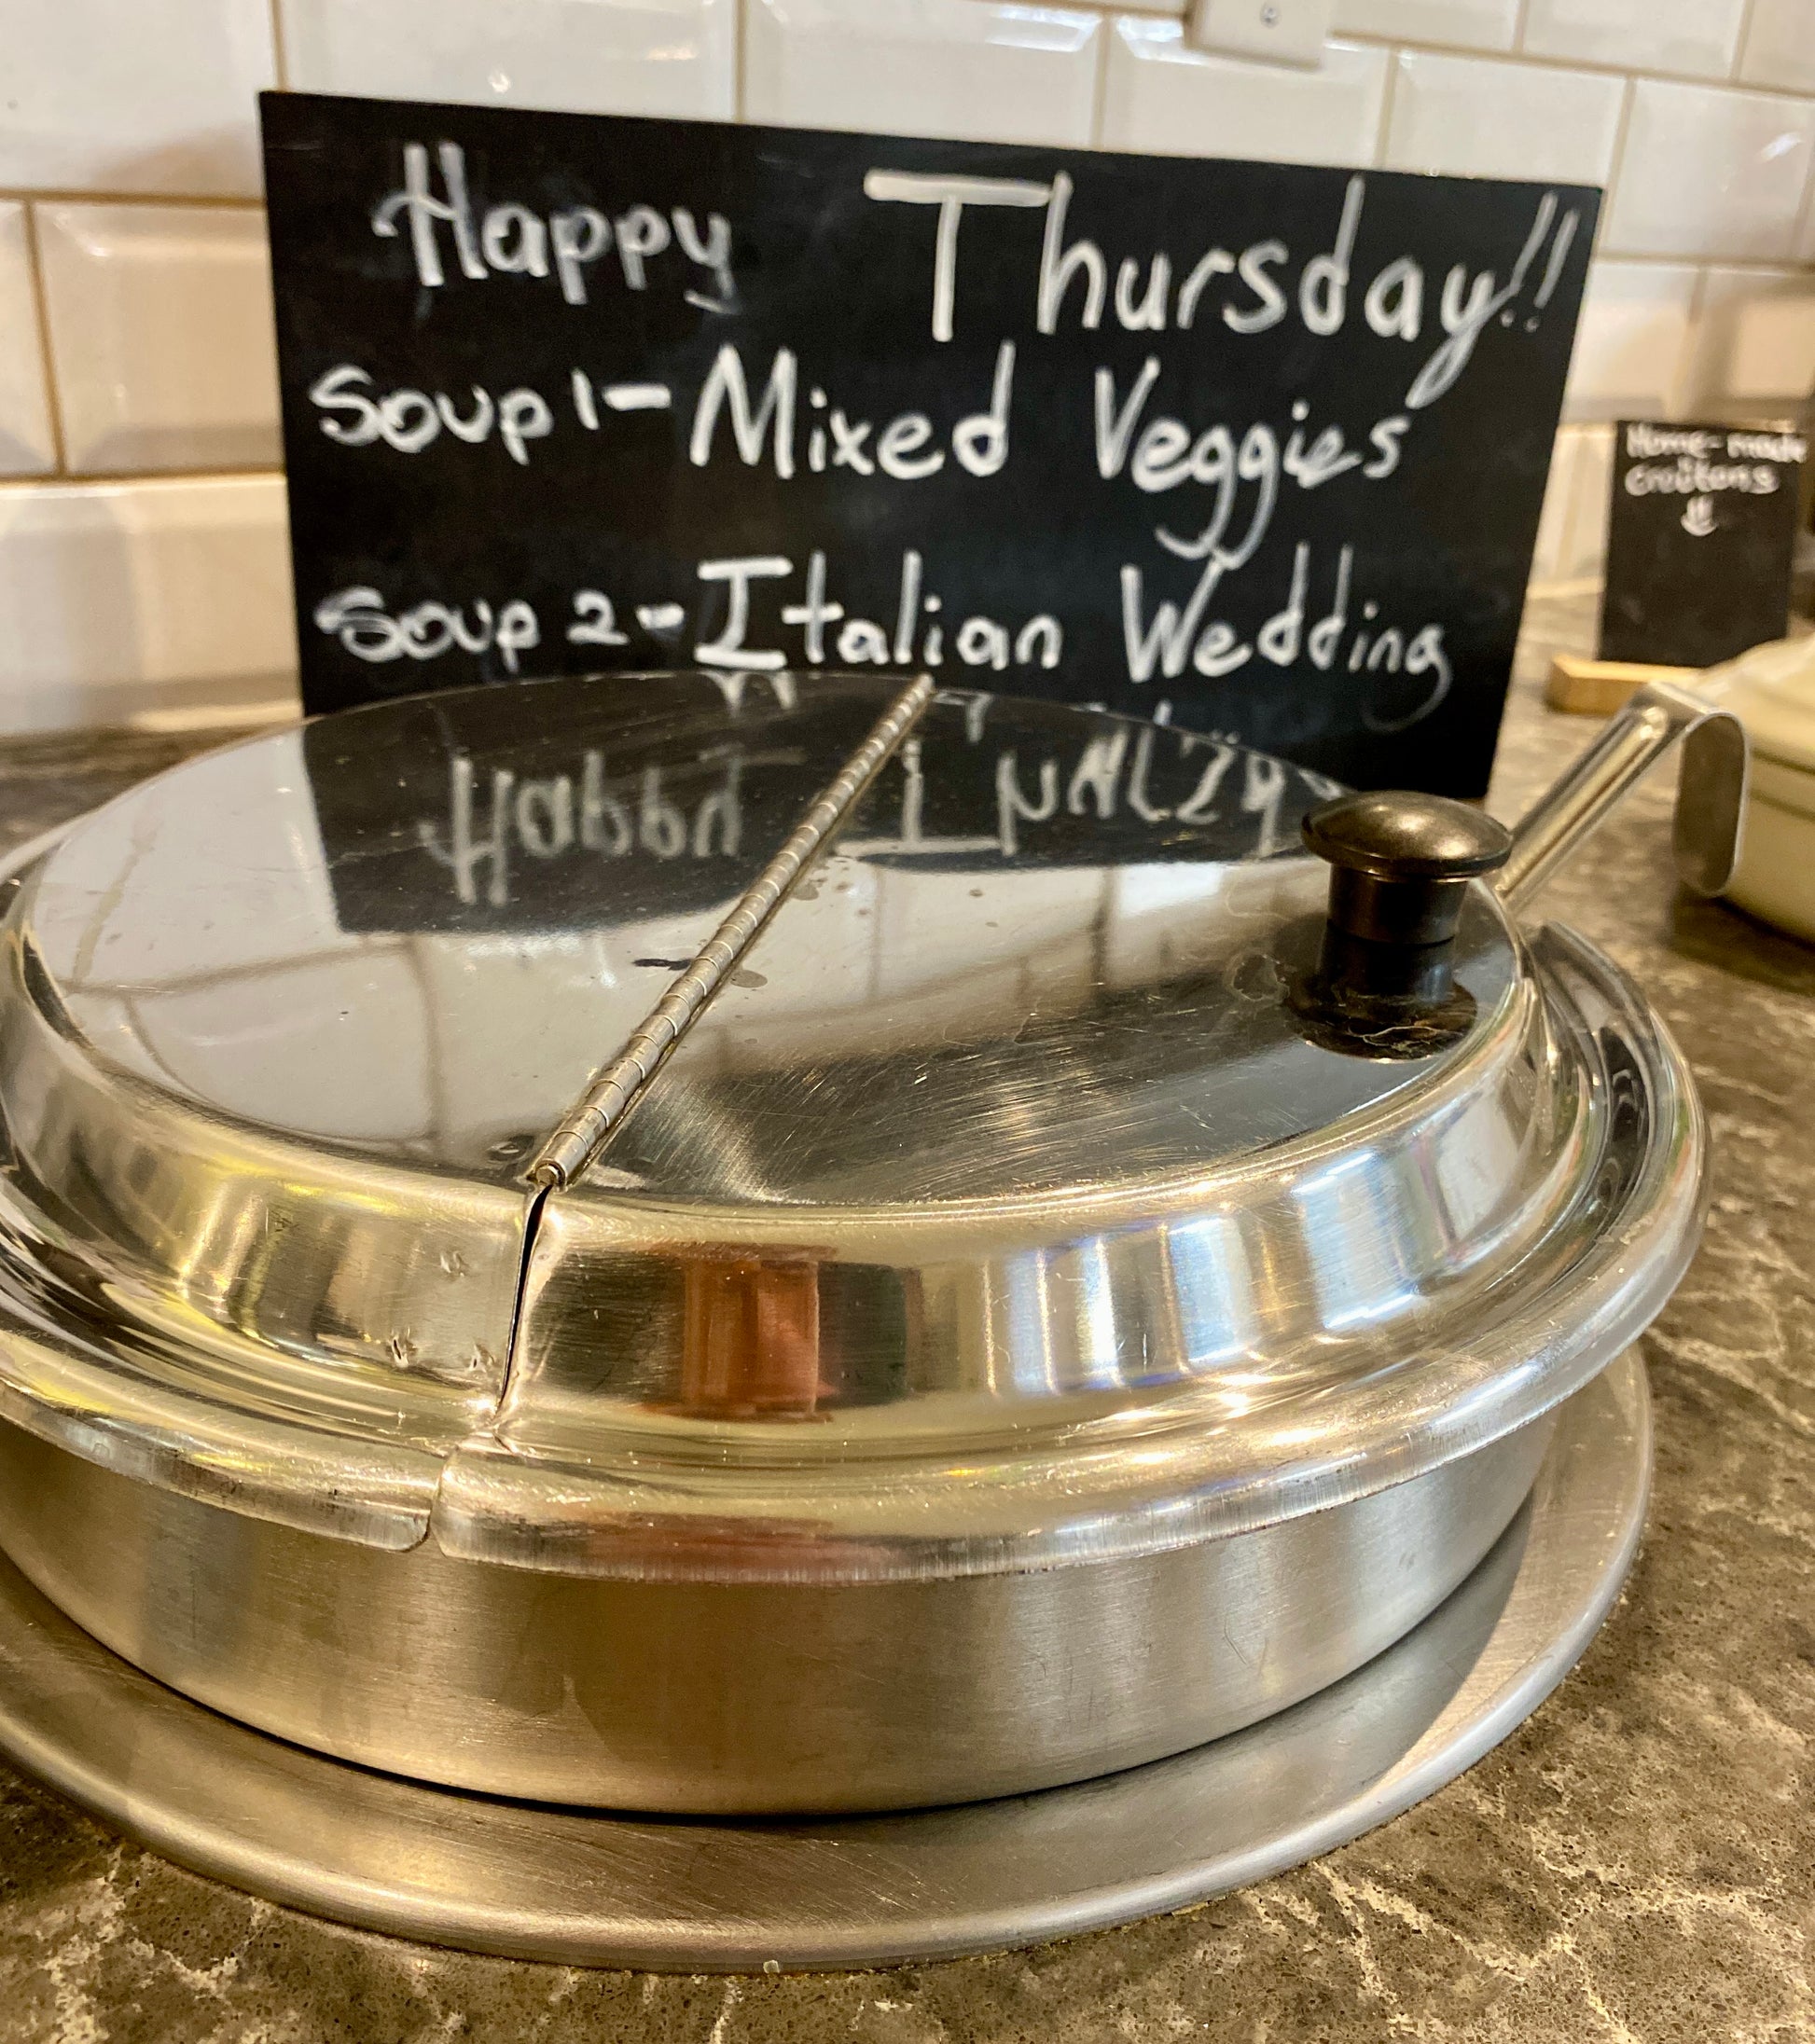 Happy Thursday!!
Soup 1- Mixed Veggies
Soup 2- Italian Wedding
Home-made
croutons